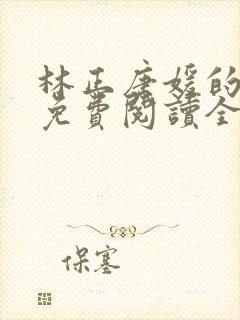 林正唐媛的
免費閱讀全
保塞